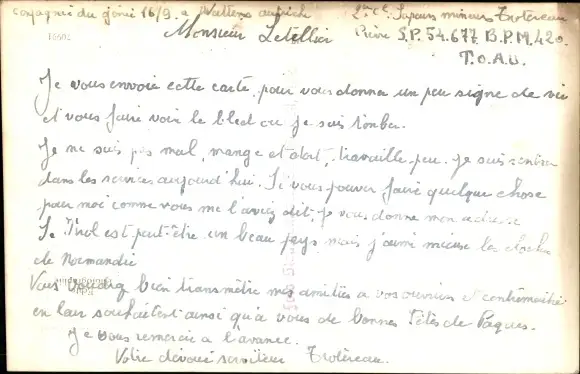 compagnie du génie 16/9. a Wattens autriche
2ème Cl. Sapeurs mineurs Trotereau
Monsieur Letellier
S.P. 54.677 B.P.M. 420.
T.O.A.
Je vous envoie cette carte, pour vous donner un peu signe de vie
et vous faire voir le bled ou je suis tomber.
Je ne suis pas mal, mange et dort, travaille peu. je suis rentrer
dans les services aujourd'hui. Si vous pouver faire quelque chose
pour moi comme vous me l'aviez dit, je vous donne mon adresse
Le Tirol est peut-être un beau pays mais j'aime mieux les
de Normandie
Vous voudrez bien transmettre mes amitiés a vos ouvriers et contremaitre
en leur souhaitent ainsi qu'a vous de bonnes fêtes de Paques.
Je vous remercie a l'avance.
Votre dévoué serviteur Trotereau.